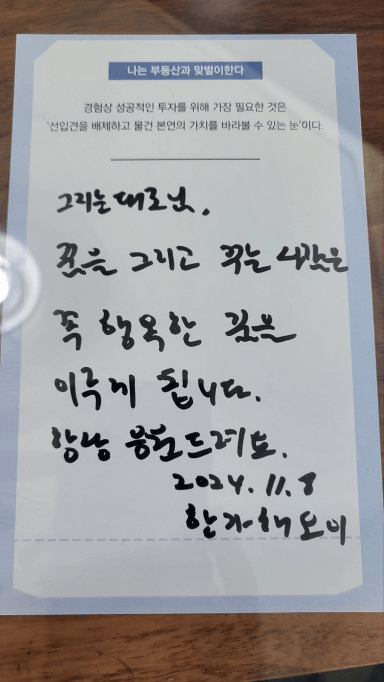 나는 부동산과 맞벌이한다
경험상 성공적인 투자를 위해 가장 필요한 것은
'선입견을 배제하고 물건 본연의 가치를 바라볼 수 있는 눈'이다.
그리는대로님,
꿈을 그리고 꾸는 시간은
꼭 행복한 길은
이루게 됩니다.
항상 응원드려요.
2024. 11. 8